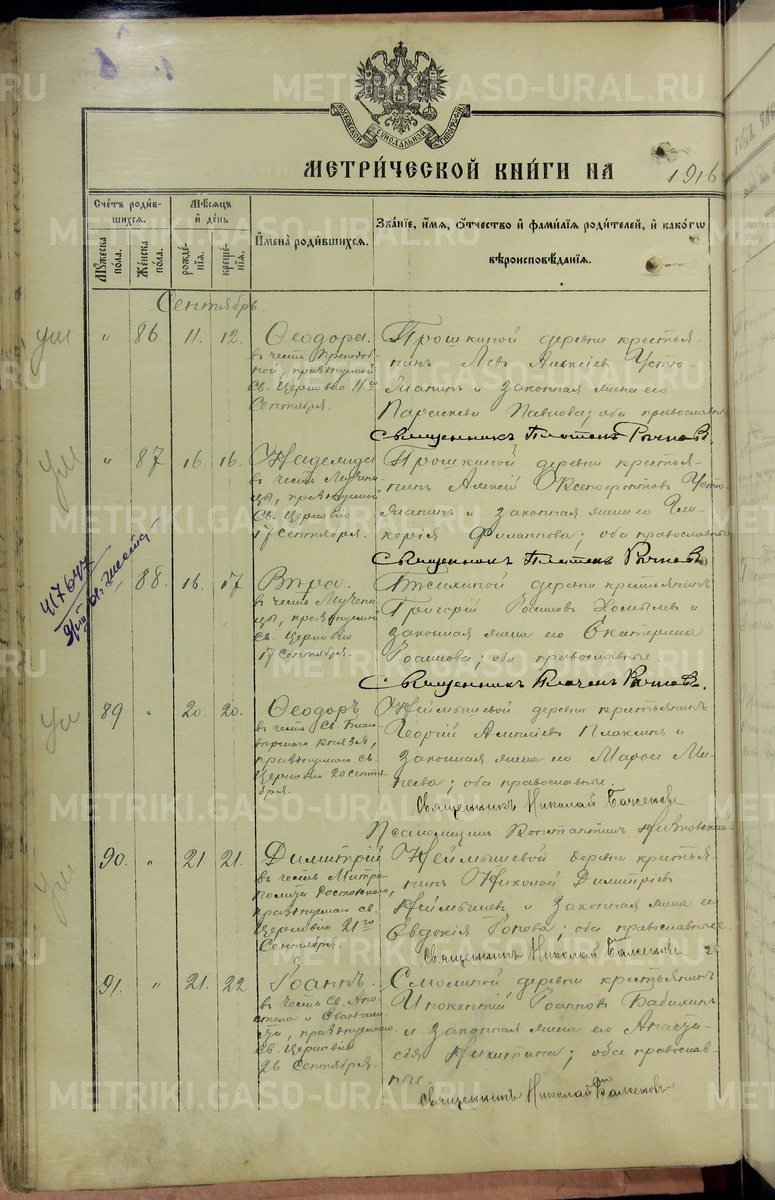 МЕТРИ́ЧЕСКОЙ КНИ́ГИ НА 1916
МОСКОВСКОЙ СѴНОДАЛЬНОЙ ТИПОГРАФІИ
Счетъ роди́в-
шихся.
Мꙋжеска
по́ла.
Же́нска
по́ла.
Мѣ́сяцъ
и҆ де́нь
рожде́-
нїѧ.
креще́-
нїѧ.
И҆мена̀ роди́вшихсѧ.
Зва́нїе, и҆́мѧ, ѻ҆́тчество и҆ фами́лїѧ роди́телей, и҆ како́гѡ
вѣроисповѣ́данїѧ.
Сентябрь.
ум
" 86 11. 12.
Ѳеодора.
въ честь преподоб-
ной, празднуемой
Св. Церковію 11го
Сентября.
Прошкиной деревни крестья-
нинъ Левъ Алексіевъ Устю-
жанинъ и законная жена его
Параскева Павлова; оба православные
Священникъ Платонъ Рычковъ.
ум
" 87 16. 16.
Надежда
въ честь Мучени-
цы, празднуемой
Св. Церковію
17 Сентября.
Прошкиной деревни крестья-
нинъ Алексій Ксенофонтовъ Устю-
жанинъ и законная жена его Гли-
керія Филиппова; оба православные
Священникъ Платонъ Рычковъ
88. 16. 17
Вѣра.
въ честь Мучени-
цы, празднуемой
Св. Церковію
17 Сентября.
деревни крестьянинъ
Григорій Іоанновъ и
законная жена его Екатерина
Іоаннова; оба православные.
Священникъ Платонъ Рычковъ.
ум
89 " 20. 20.
Ѳеодоръ
въ честь Св. Благо-
вѣрнаго Князя,
празднуемаго Св.
Церковію 20 Сентя-
бря.
Неймышевой деревни крестьянинъ
Георгій и
законная жена его
оба православные.
Священникъ Николай
Псаломщикъ Константинъ
ум
90. " 21 21.
Димитрій
въ честь Митро-
полита Ростовскаго,
празднуемаго Св.
Церковію 21го
Сентября.
Неймышевой деревни крестья-
нинъ Николай Димитріевъ
Неймышевъ и законная жена его
Евдокія оба православные.
Священникъ Николай
91. " 21. 22
Іоаннъ.
въ честь Св. Апо-
стола и Евангели-
ста, празднуемаго
Св. Церковію
26 Сентября.
Смолиной деревни крестьянинъ
Инокентій Іоанновъ Бабихинъ
и законная жена его Анаста-
сія Никитина; оба православ-
ные.
Священникъ Николай
METRIKI.GASO-URAL.RU